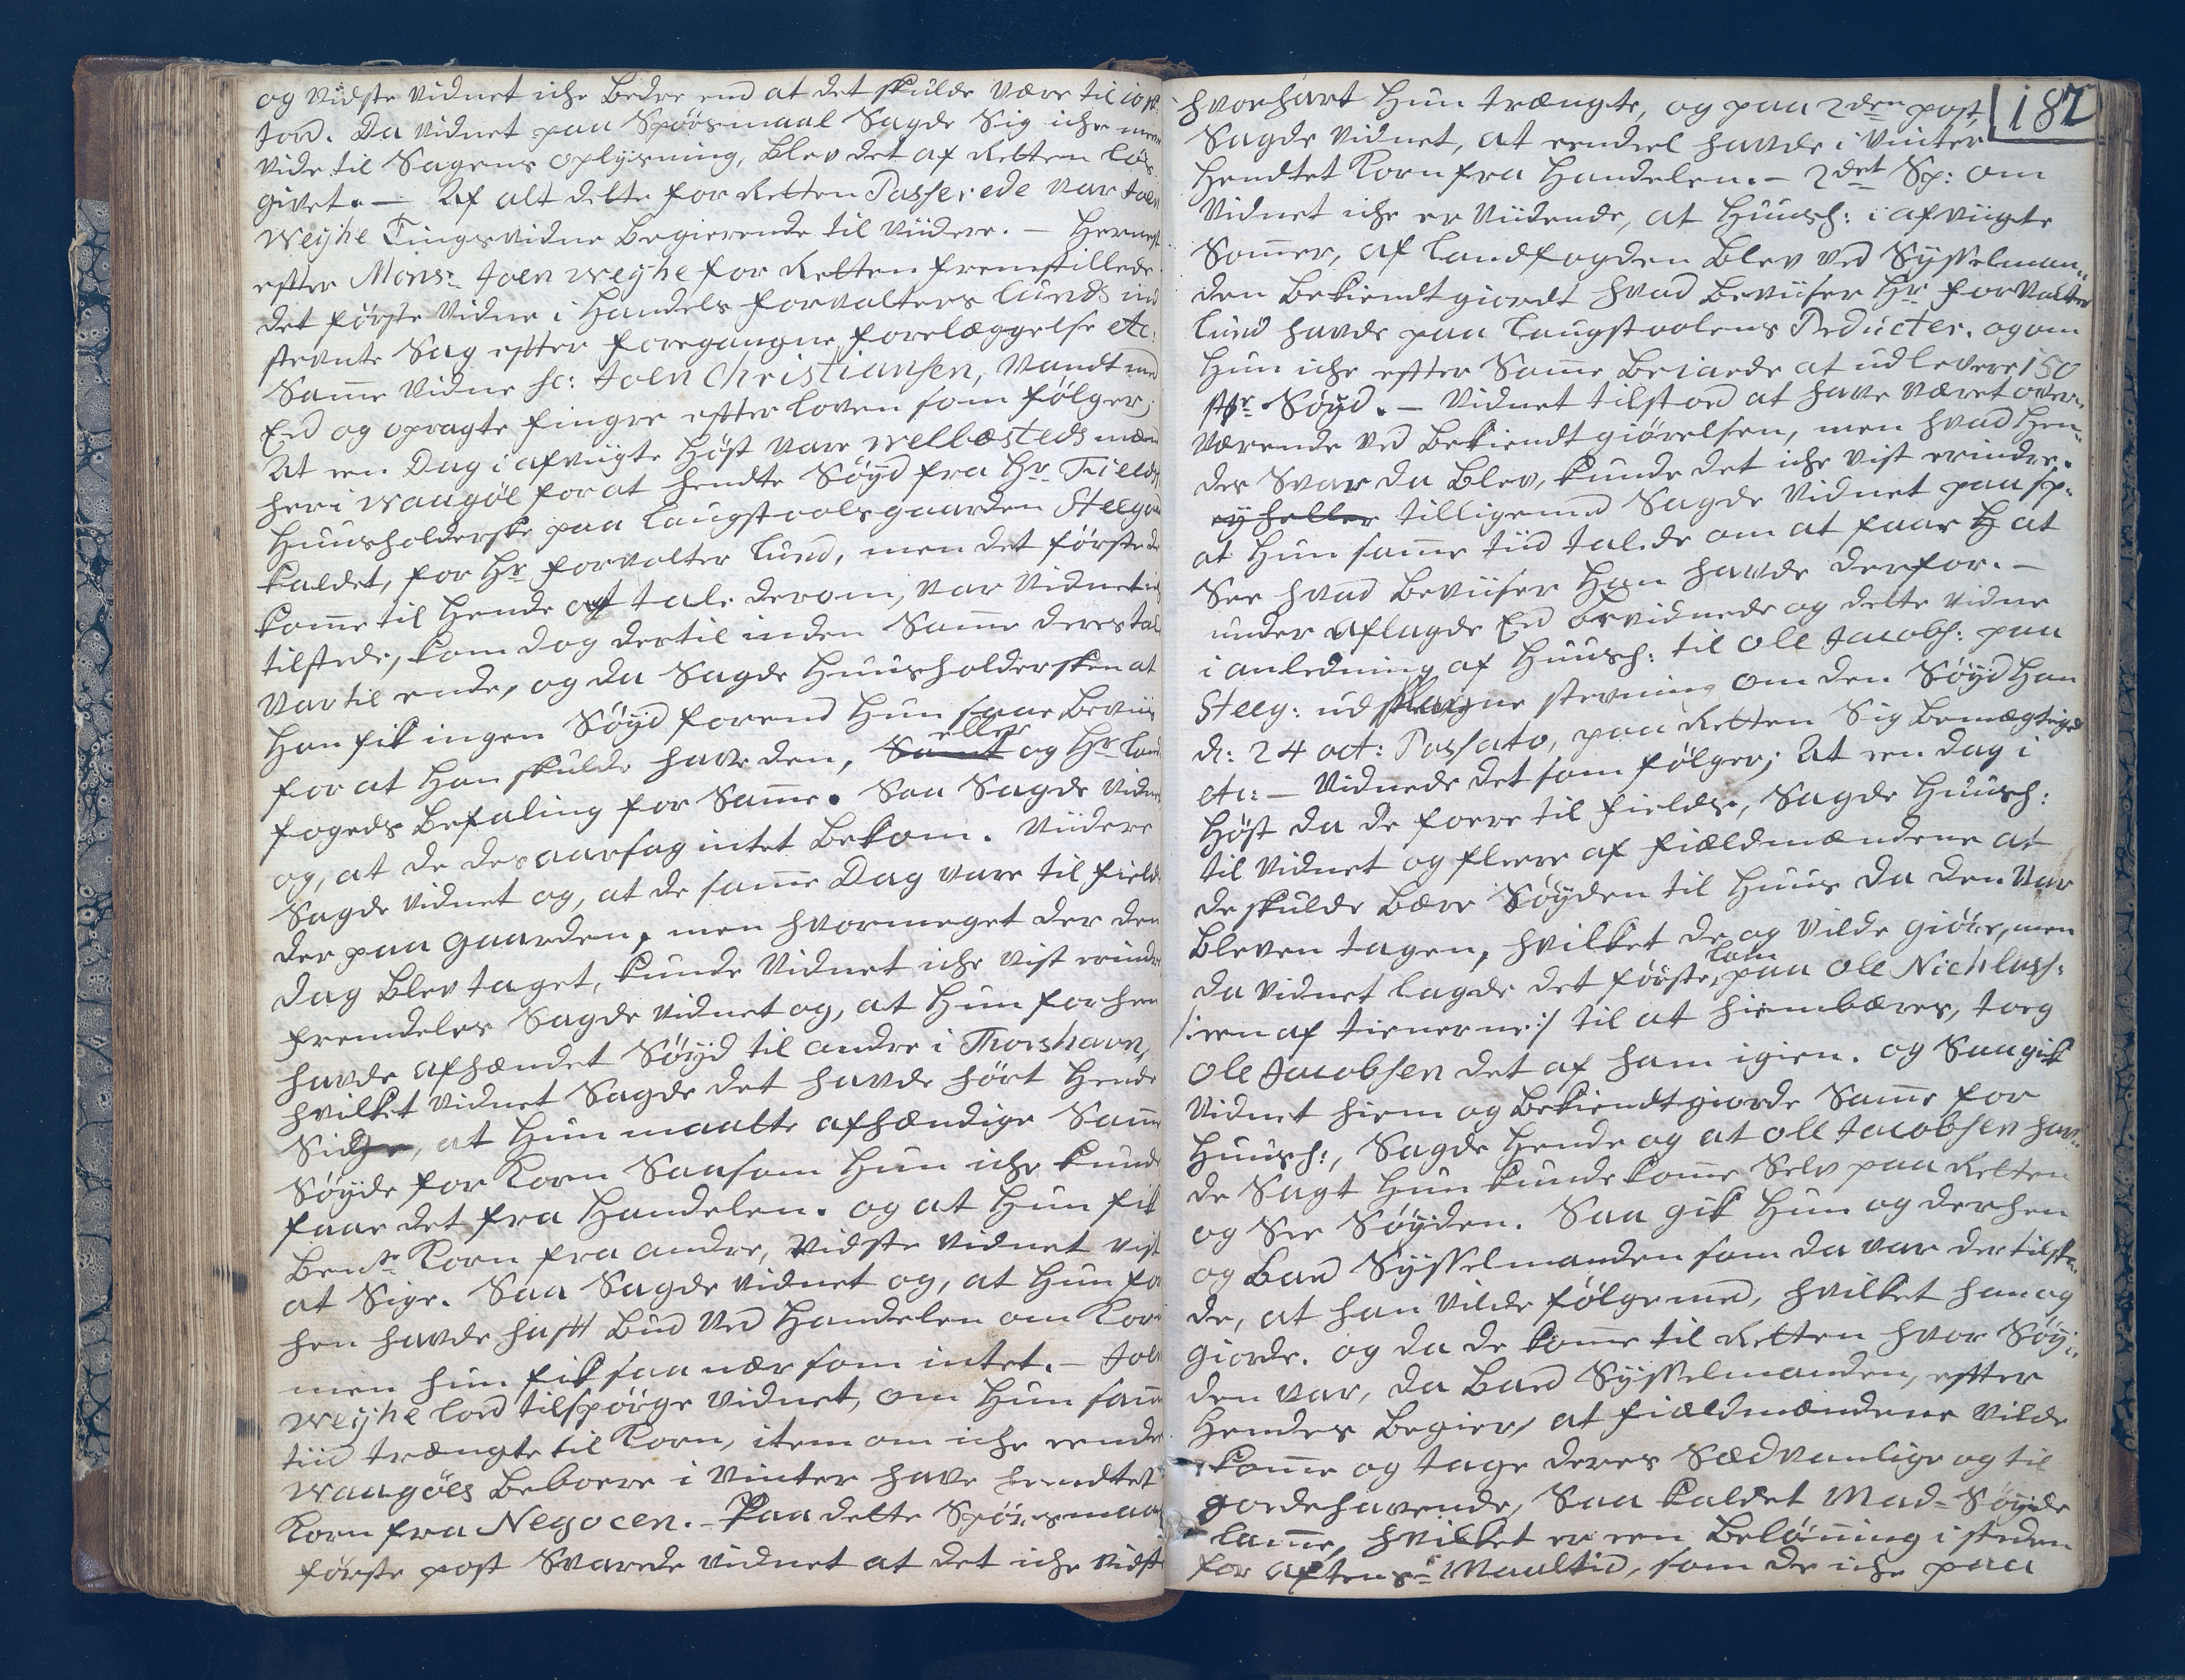 og vidste vidnet iche bedre end at det skulde være til 10 st:
Jord. Da vidnet paa Spörsmaal Sagde Sig iche mere
vide til Sagens oplysning, blev det af Retten løs
givet. — Af alt dette for Retten Passerede var Joen
Weyhe Tingsvidne begierende til viidere. — Hernest
efter Mons:r Joen Weyhe for Retten fremstillede
det første Vidne i Handels Forvalters Lunds ind
stevnte Sag efter foregangne forelæggelse etc:
Samme vidne sc: Joen Christiansen, vandt med
Eed og opragte fingre efter loven som følger;
At een Dag i afvigte Høst vare Welbæsteds mænd
her i Waagöe for at hendte Söyd fra Hr. Fields
Huusholderske paa Laugstoolsgaarden Steegaard
kaldet, for Hr forvalter Lund, men det første de
komme til hende at tale derom, var vidnet iche
tilstede, kom dog dertil inden Samme deres tale
var til ende, og da Sagde Huusholdersken at
han fik ingen Söyd forend hun saae Beviis
for at han skulde have den, Samt eller og Hr Land
fogeds befaling for Samme. Saa Sagde vidnet
og, at de desaarsag intet bekom. Viidere
Sagde vidnet og, at de samme Dag vare til field
der paa gaarden, men hvormeget der den
dag blev taget, kunde vidnet iche vist erindre
fremdeles Sagde vidnet og, at hun forhen
havde afhændet Söyd til andre i Thorshavn,
hvilket vidnet Sagde det havde hört hende
Sige, at hun maatte afhændige Samme
Söyde for Korn Saasom hun iche kunde
faae det fra Handelen. og at hun fik
ben:te Korn fra andre, vidste vidnet vist
at Sige. Saa Sagde vidnet og, at hun for
hen havde haft bud ved Handelen om Korn
men hun fik saa nær som intet. — Joen
Weyhe lod tilspörge vidnet, om hun samme
tiid trængte til Korn, item om iche eendel
Waagöes beboere i vinter have hendtet
Korn fra Negocen. — Paa dette Spörsmaals
første post Svarede vidnet at det iche vidste
187
hvorhart hun trængte, og paa 2den post,
Sagde vidnet, at eendeel havde i vinter
hendtet Korn fra Handelen. — 2det Sp: om
vidnet iche er viidende, at Huush: i afviigte
Sommer, af Landfogden blev ved Sysselman„
den bekiendtgiordt hvad beviiser Hr forvalter
Lund havde paa Laugstoolens Producter. og om
hun iche efter Samme beiaede at udlevere 150
st:r Söyd. — Vidnet tilstod at have været over„
værende ved bekiendtgiörelsen, men hvad hen„
des Svar da blev, kunde det iche vist erindre.
ey heller tilligemed Sagde vidnet paa sp:
at hun samme tiid talede om at faae H at
See hvad beviiser han havde derfor. —
under aflagde Eed bevidnede og dette vidne
i anledning af Huush: til Ole Jacobs: paa
Steeg: udstagne stevning om den Söyd han
d: 24 oct: Passato, paa Retten Sig bemægtigede
etc: — Vidnede det som følger; At een dag i
Høst da de foere til fields, Sagde Huush:
til vidnet og fleere af fieldmændene at
de skulde bære Söyden til Huus da den var
bleven tagen, hvilket de og vilde giöre, men
da vidnet lagde det förste Lam paa Ole Nichlass:
/: een af tienerne :/ til at hiembæres, toeg
Ole Jacobsen det af ham igien. og Saa gik
vidnet hiem og bekiendtgiorde Samme for
Huush:, Sagde hende og at Ole Jacobsen hav„
de Sagt hun kunde komme Selv paa Retten
og See Söyden. Saa gik hun og derhen
og bad Sysselmanden som da var der tilste„
de, at han vilde følge med, hvilket han og
giorde. og da de komme til Retten hvor Söy„
den var, da bad Sysselmanden, efter
hendes begier, at fieldmændene vilde
komme og tage deres Sædvanlige og til
godehavende, Saa kaldet Mad-Söyde
Lamme, hvilket er een belönning i steden
for Aftens-Maaltid, som de iche paa